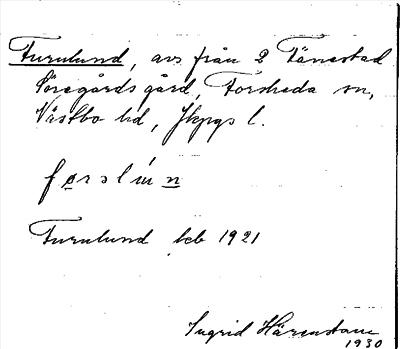 Furulund, avs från 2 Tånestad
Södregårds gård, Forsheda sn,
Västbo hd, Jkpgs l.
Furulund beb 1921
Ingrid Härenstam
1930